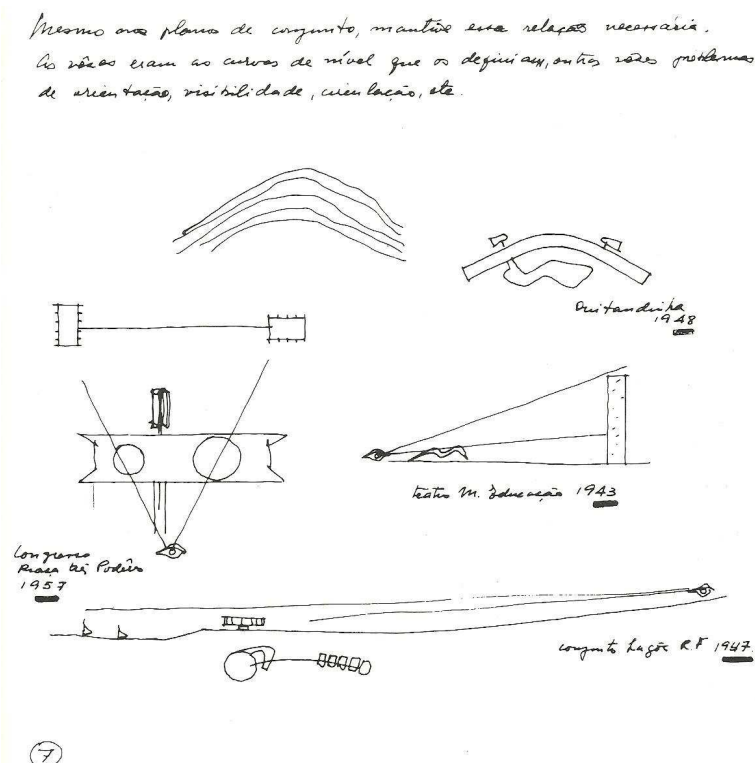 Mesmo nos planos de conjunto, mantive essa relação necessária.
Às vêzes eram as curvas de nível que os definiam, outras vêzes problemas
de orientação, visibilidade, circulação, etc.
Quitandinha
1948
teatro M. Educação 1943
Congresso
Praça Três Podêres
1957
conjunto Lagôa R.F 1947.
7